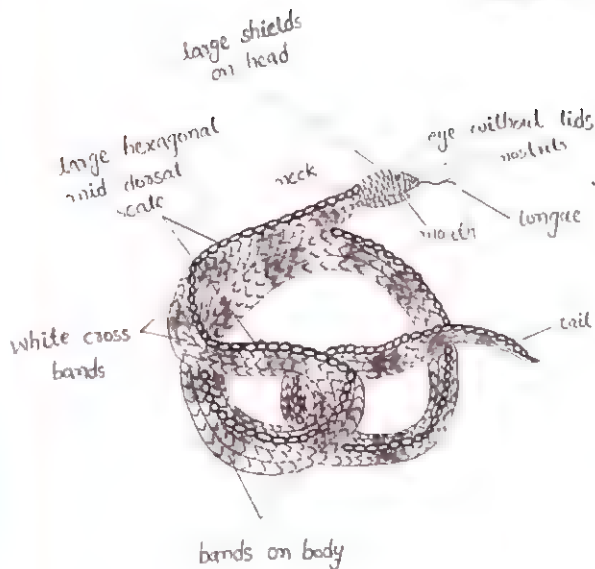 large shields
on head
large hexagonal
mid dorsal
scale
neck
eye without lids
nostrils
tongue
mouth
white cross
bands
tail
bands on body